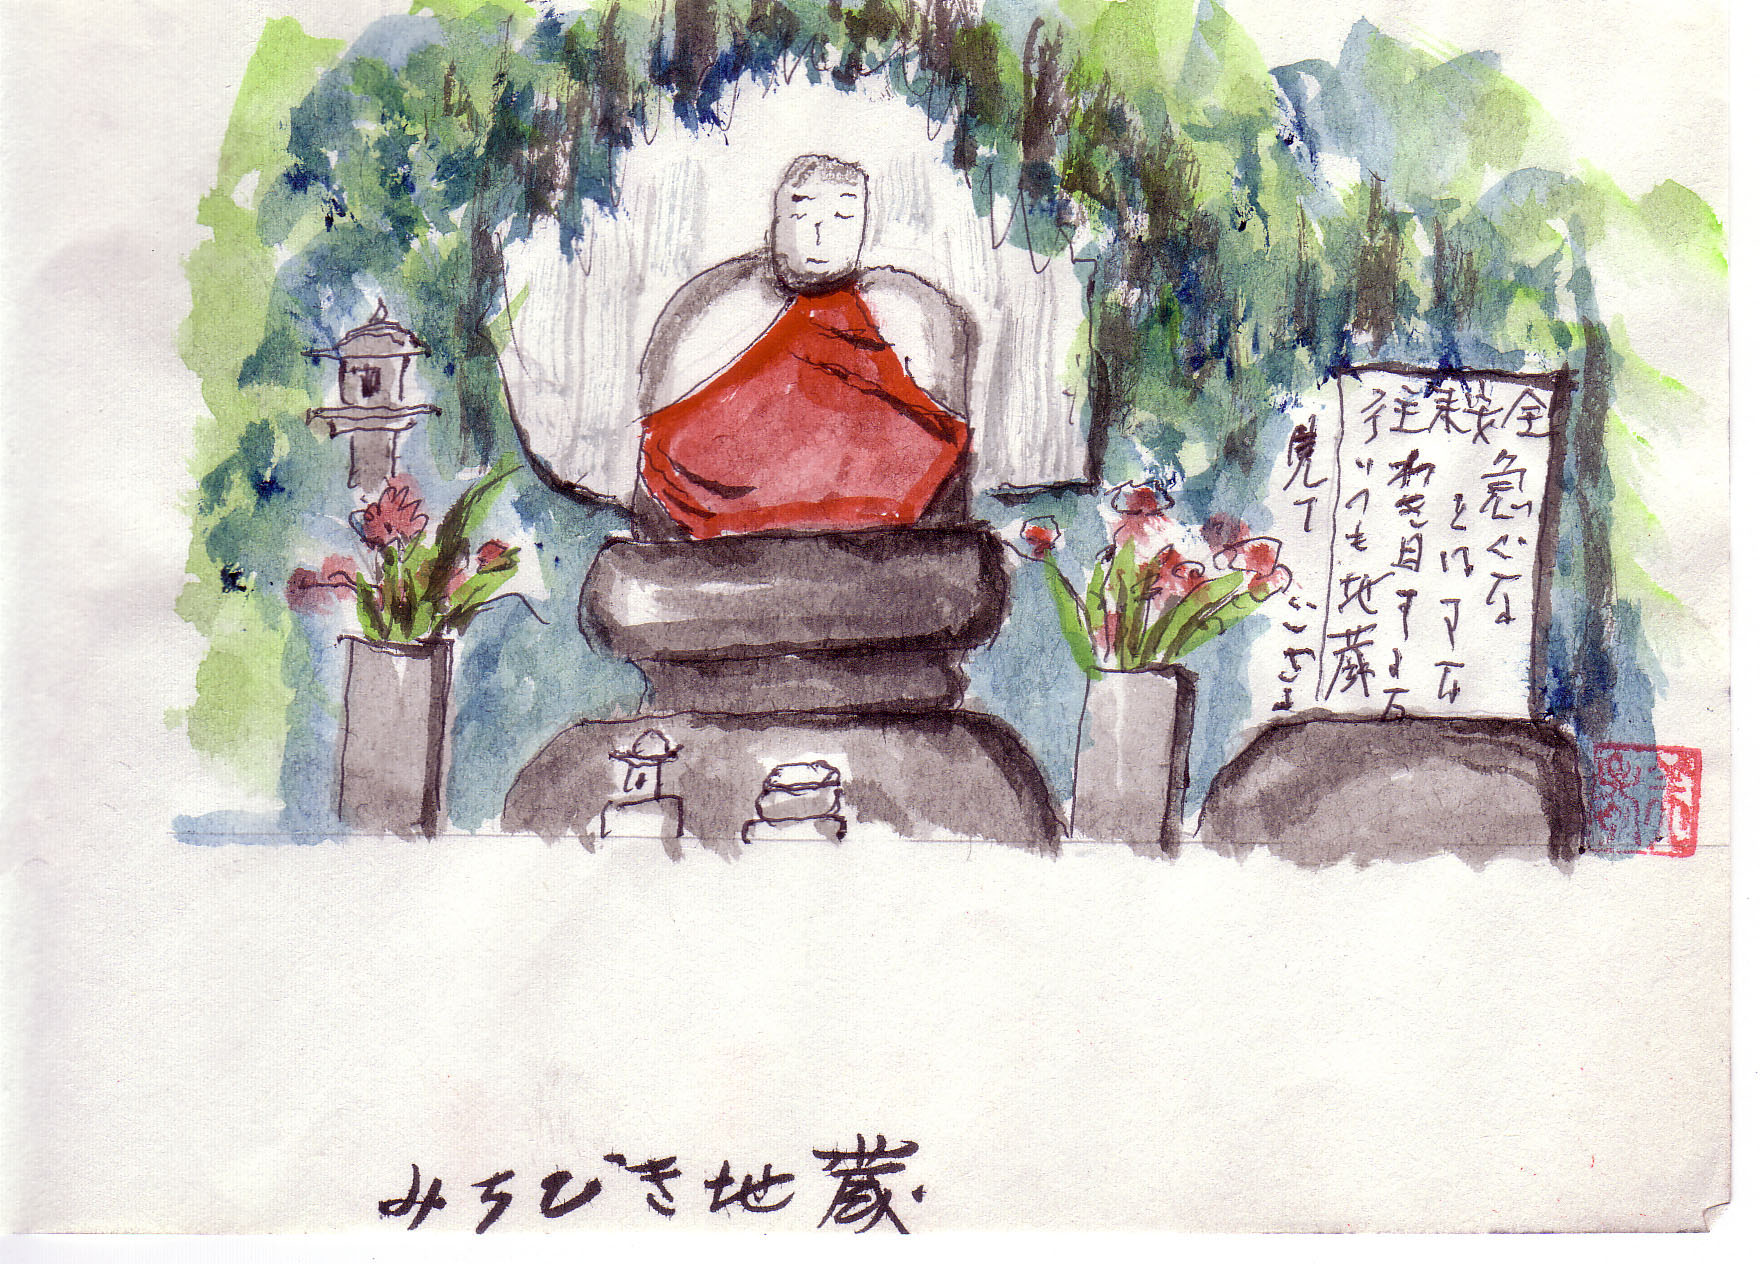 往来安全
急ぐな
とばすな
わき目するな
いつも地蔵
見てござる
みちびき地蔵